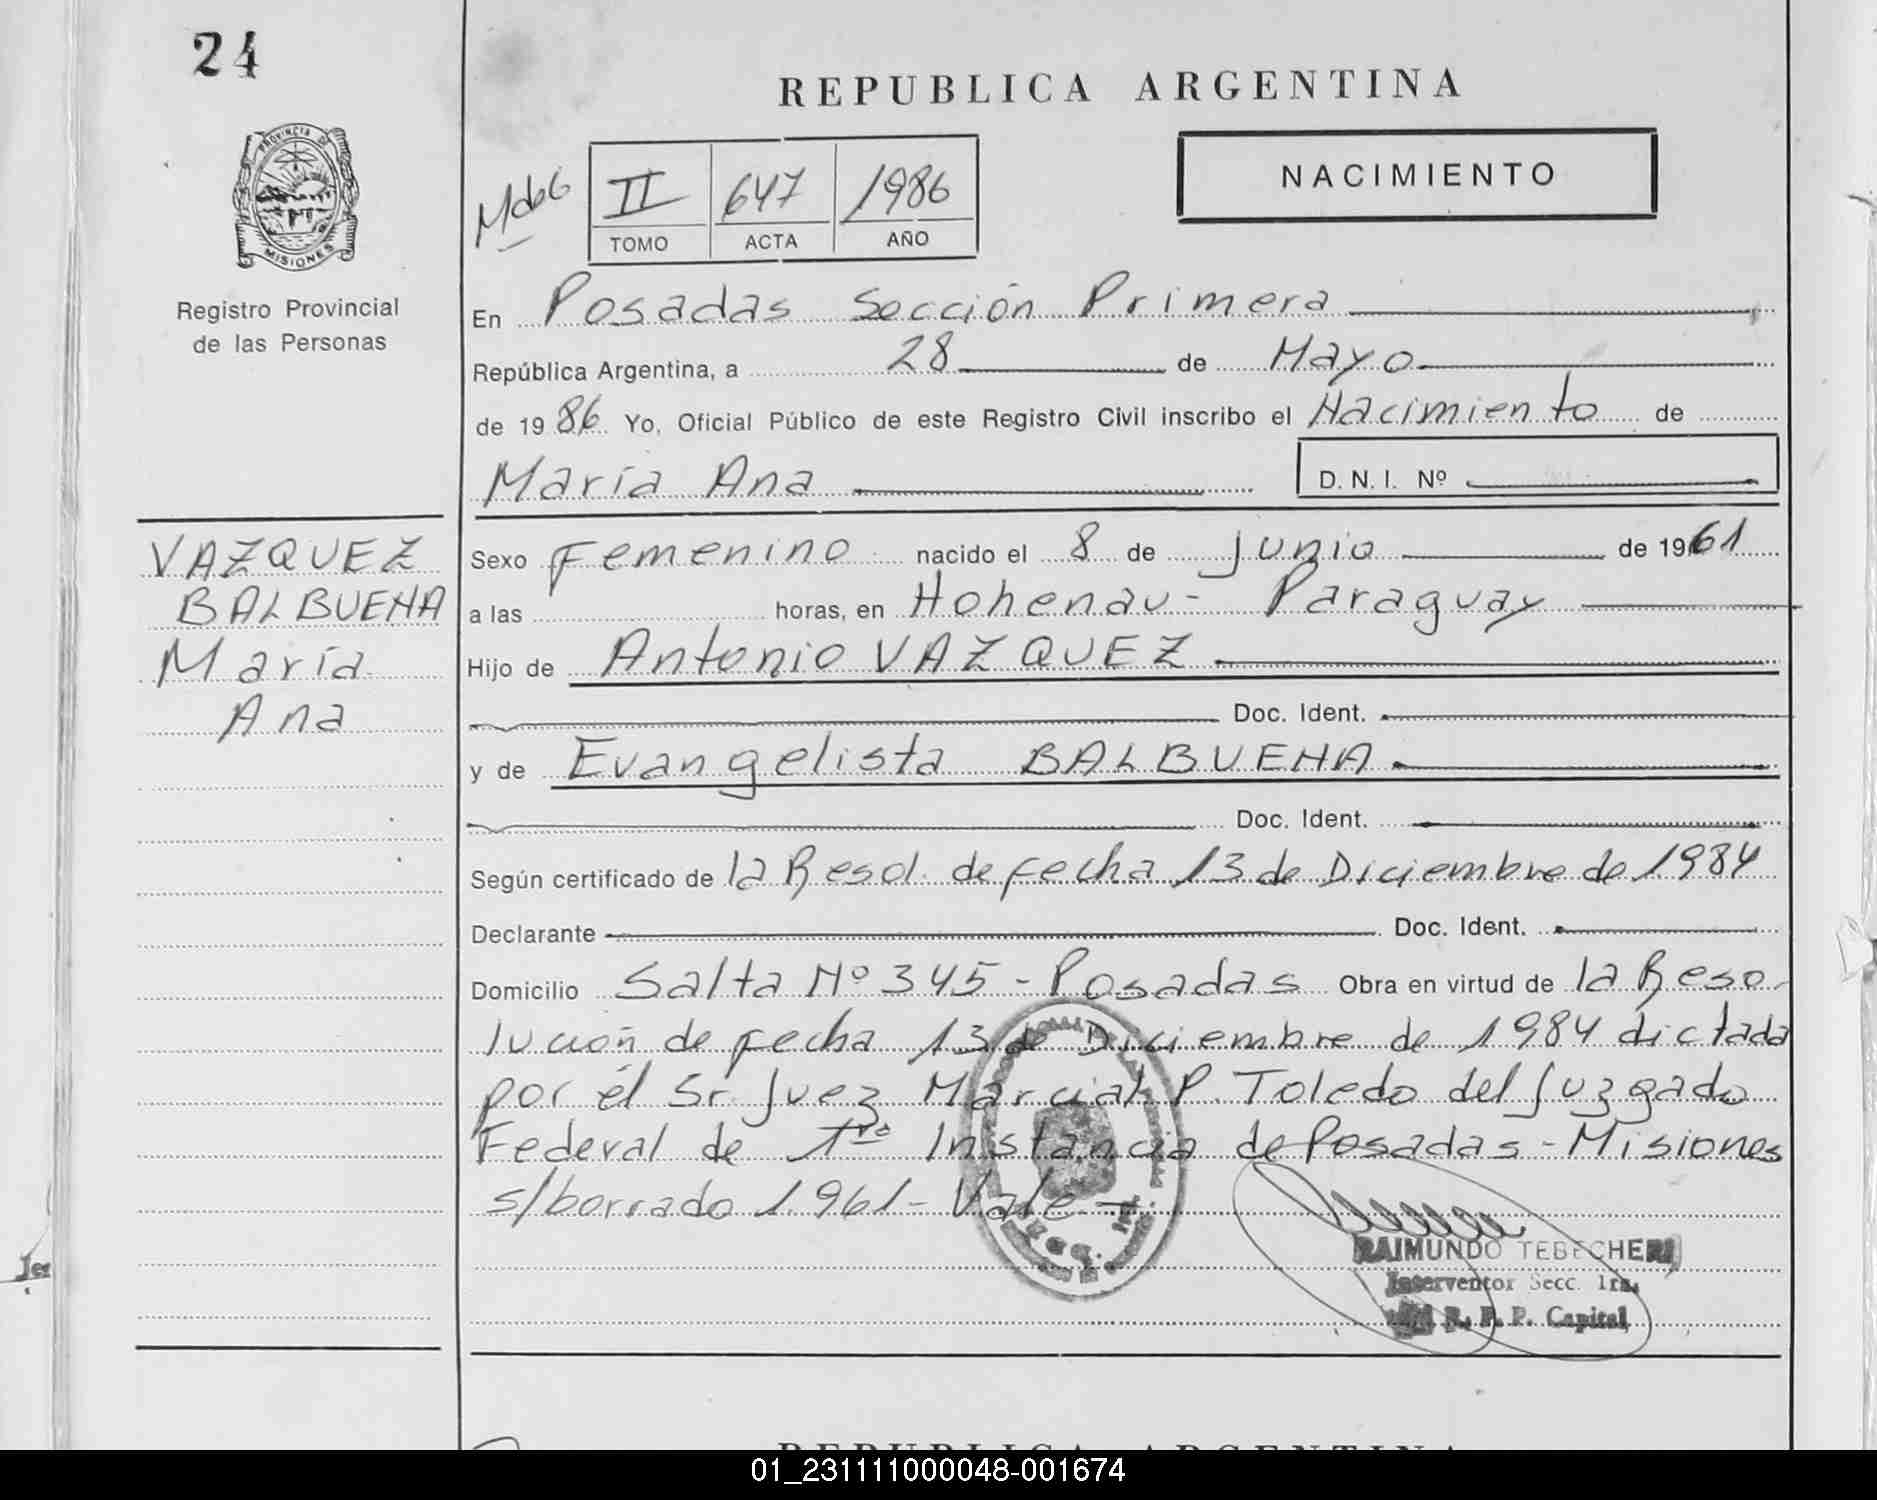 24
PROVINCIA DE
MISIONES
Registro Provincial
de las Personas
REPUBLICA ARGENTINA
NACIMIENTO
II 647 1986
TOMO ACTA AÑO
En Posadas Sección Primera
República Argentina, a 28 de Mayo
de 1986 Yo, Oficial Público de este Registro Civil inscribo el Nacimiento de
María Ana D. N. I. Nº
VAZQUEZ
BALBUENA
María
Ana
Sexo Femenino nacido el 8 de Junio de 1961
a las horas, en Hohenau - Paraguay
Hijo de Antonio VAZQUEZ
Doc. Ident.
y de Evangelista BALBUENA
Doc. Ident.
Según certificado de la Resol. de fecha 13 de Diciembre de 1984
Declarante Doc. Ident.
Domicilio Salta Nº 345 - Posadas Obra en virtud de la Reso-
lución de fecha 13 de Diciembre de 1984 dictada
por él Sr. Juez Marcial P. Toledo del Juzgado
Federal de 1ra Instancia de Posadas - Misiones
s/borrado 1961 - Vale -
RAIMUNDO TEBECHERI
Interventor Secc. 1ra.
R. P. P. Capital
REPUBLICA ARGENTINA
01_231111000048-001674